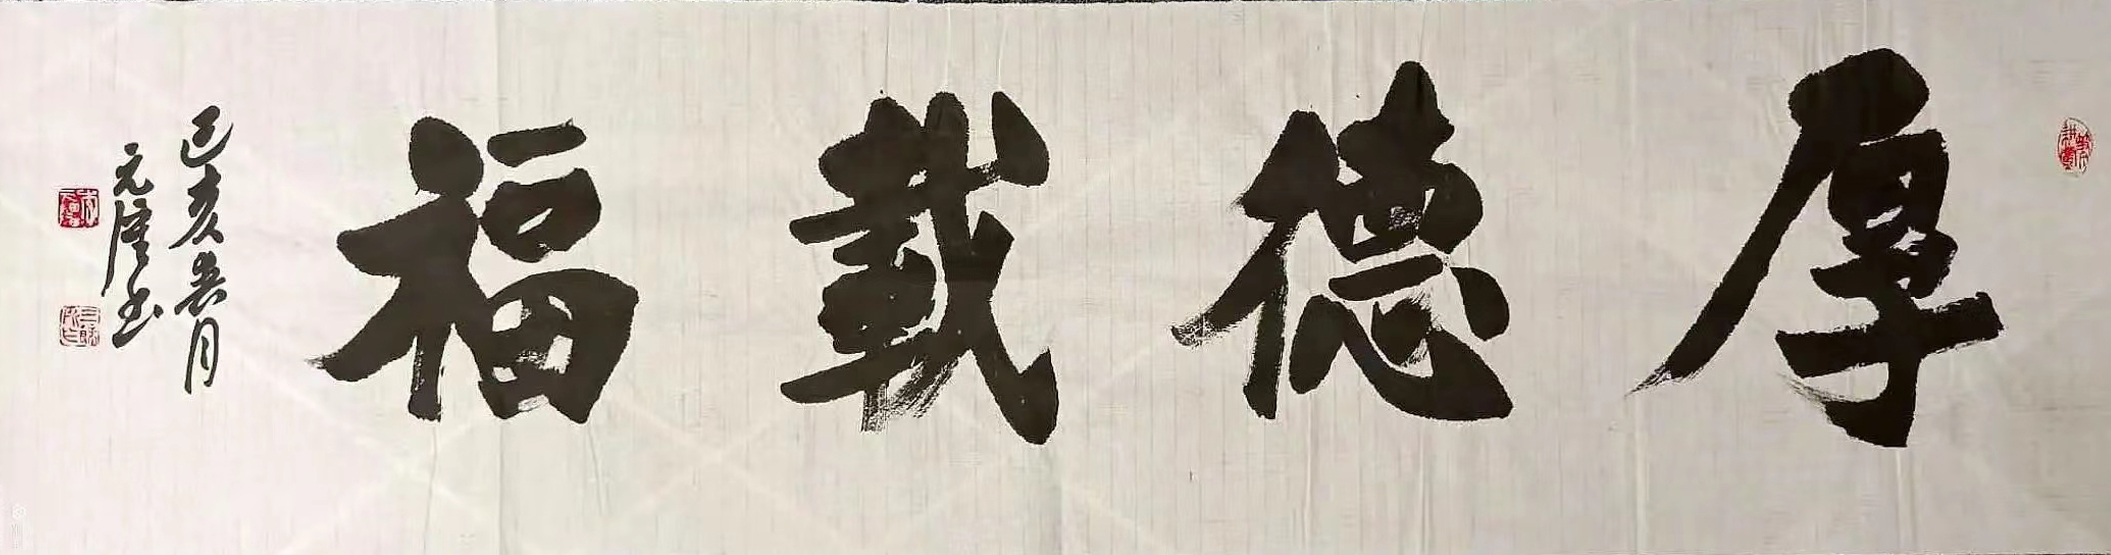 厚德載福
己亥春月
元隆书